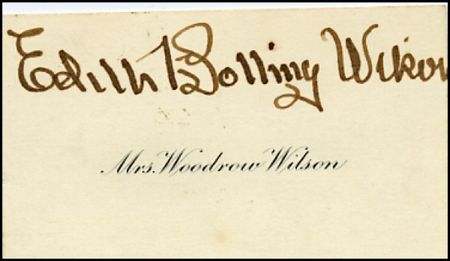 Edith Bolling Wilson
Mrs. Woodrow Wilson